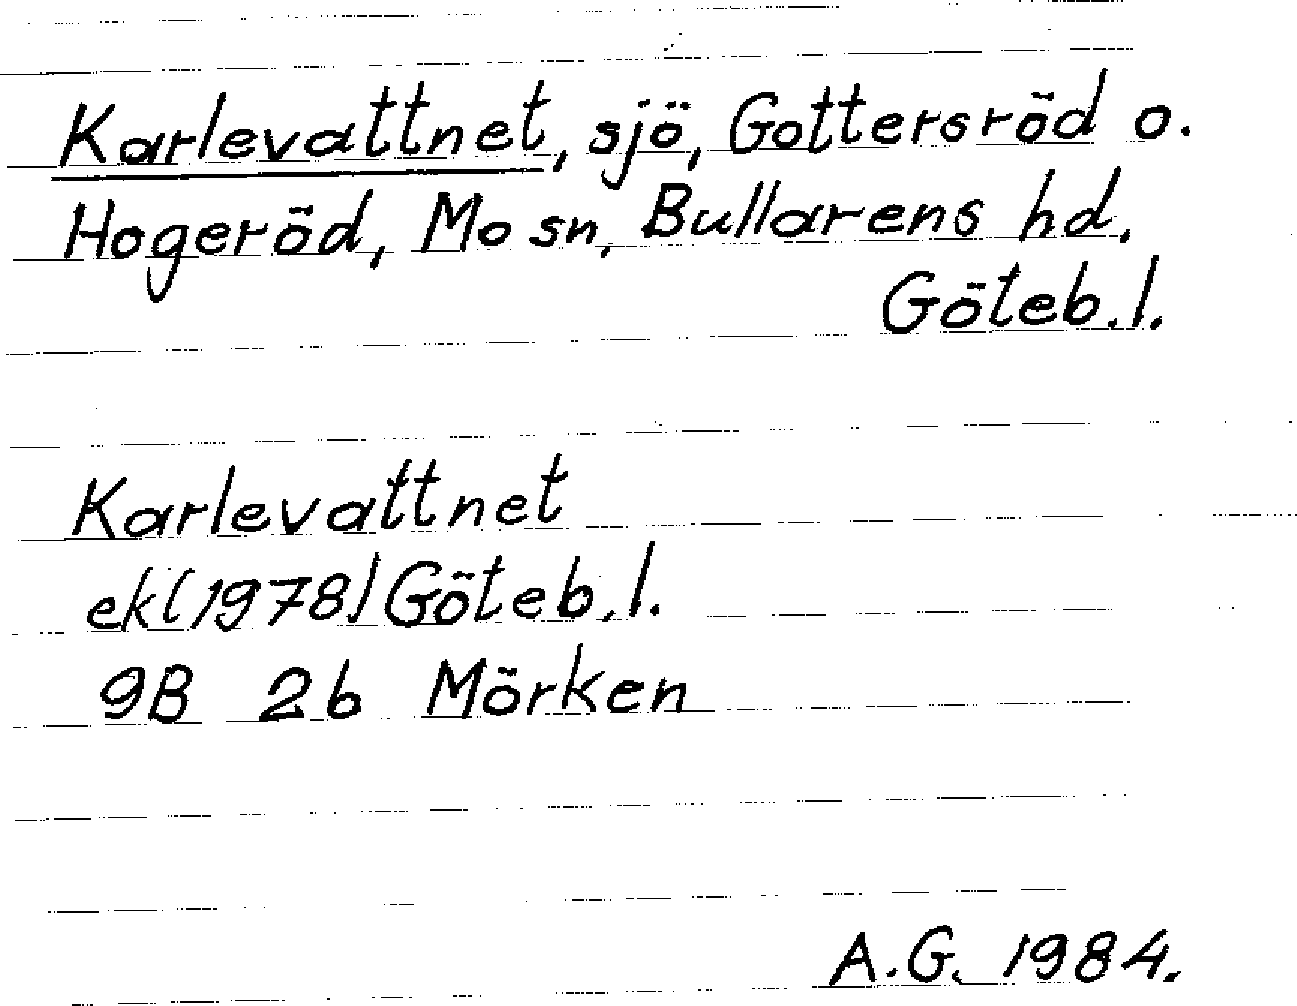 Karlevattnet, sjö, Gottersröd o.
Hogeröd, Mo sn, Bullarens hd,
Göteb.l.
Karlevattnet
ekl(1978) Göteb.l.
9B 2b Mörken
A.G. 1984.